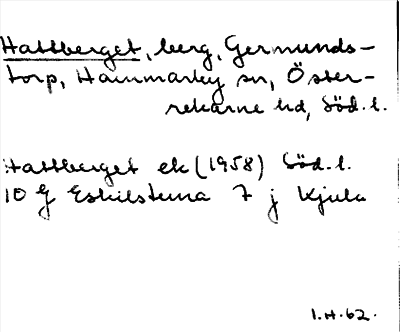 Hattberget, berg, Germunds-
torp, Hammarby sn, Öster-
rekarne hd, Söd. l.
Hattberget ek (1958) Söd. l.
10 G Eskilstuna 7 j Kjula
I.H. 62.